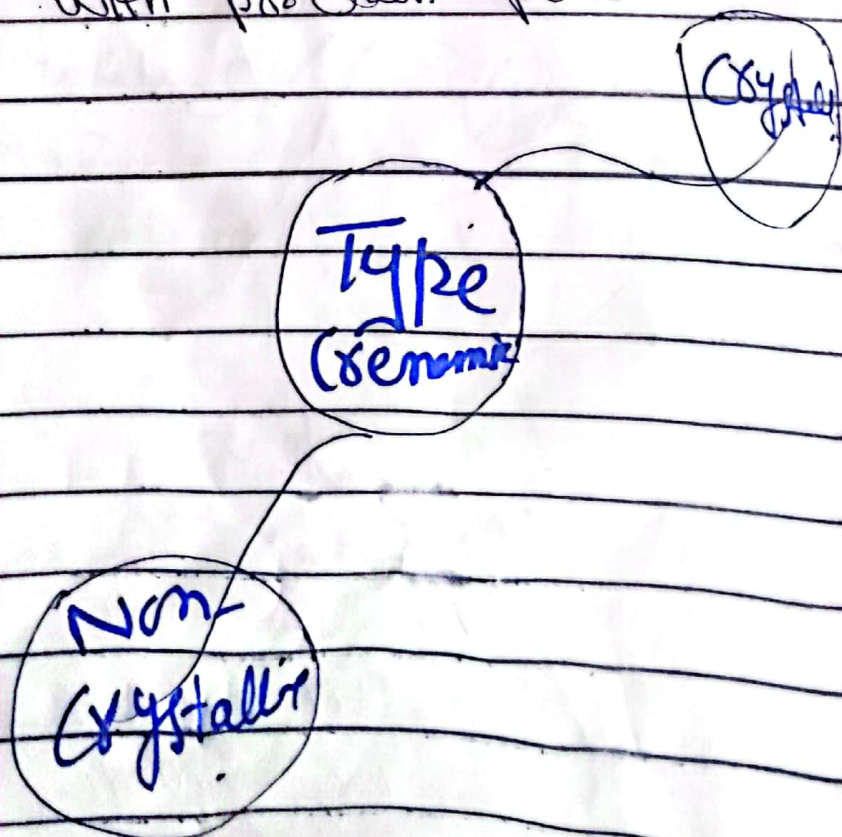 With
Crystall
Type
Ceremic
Non-
Crystallie